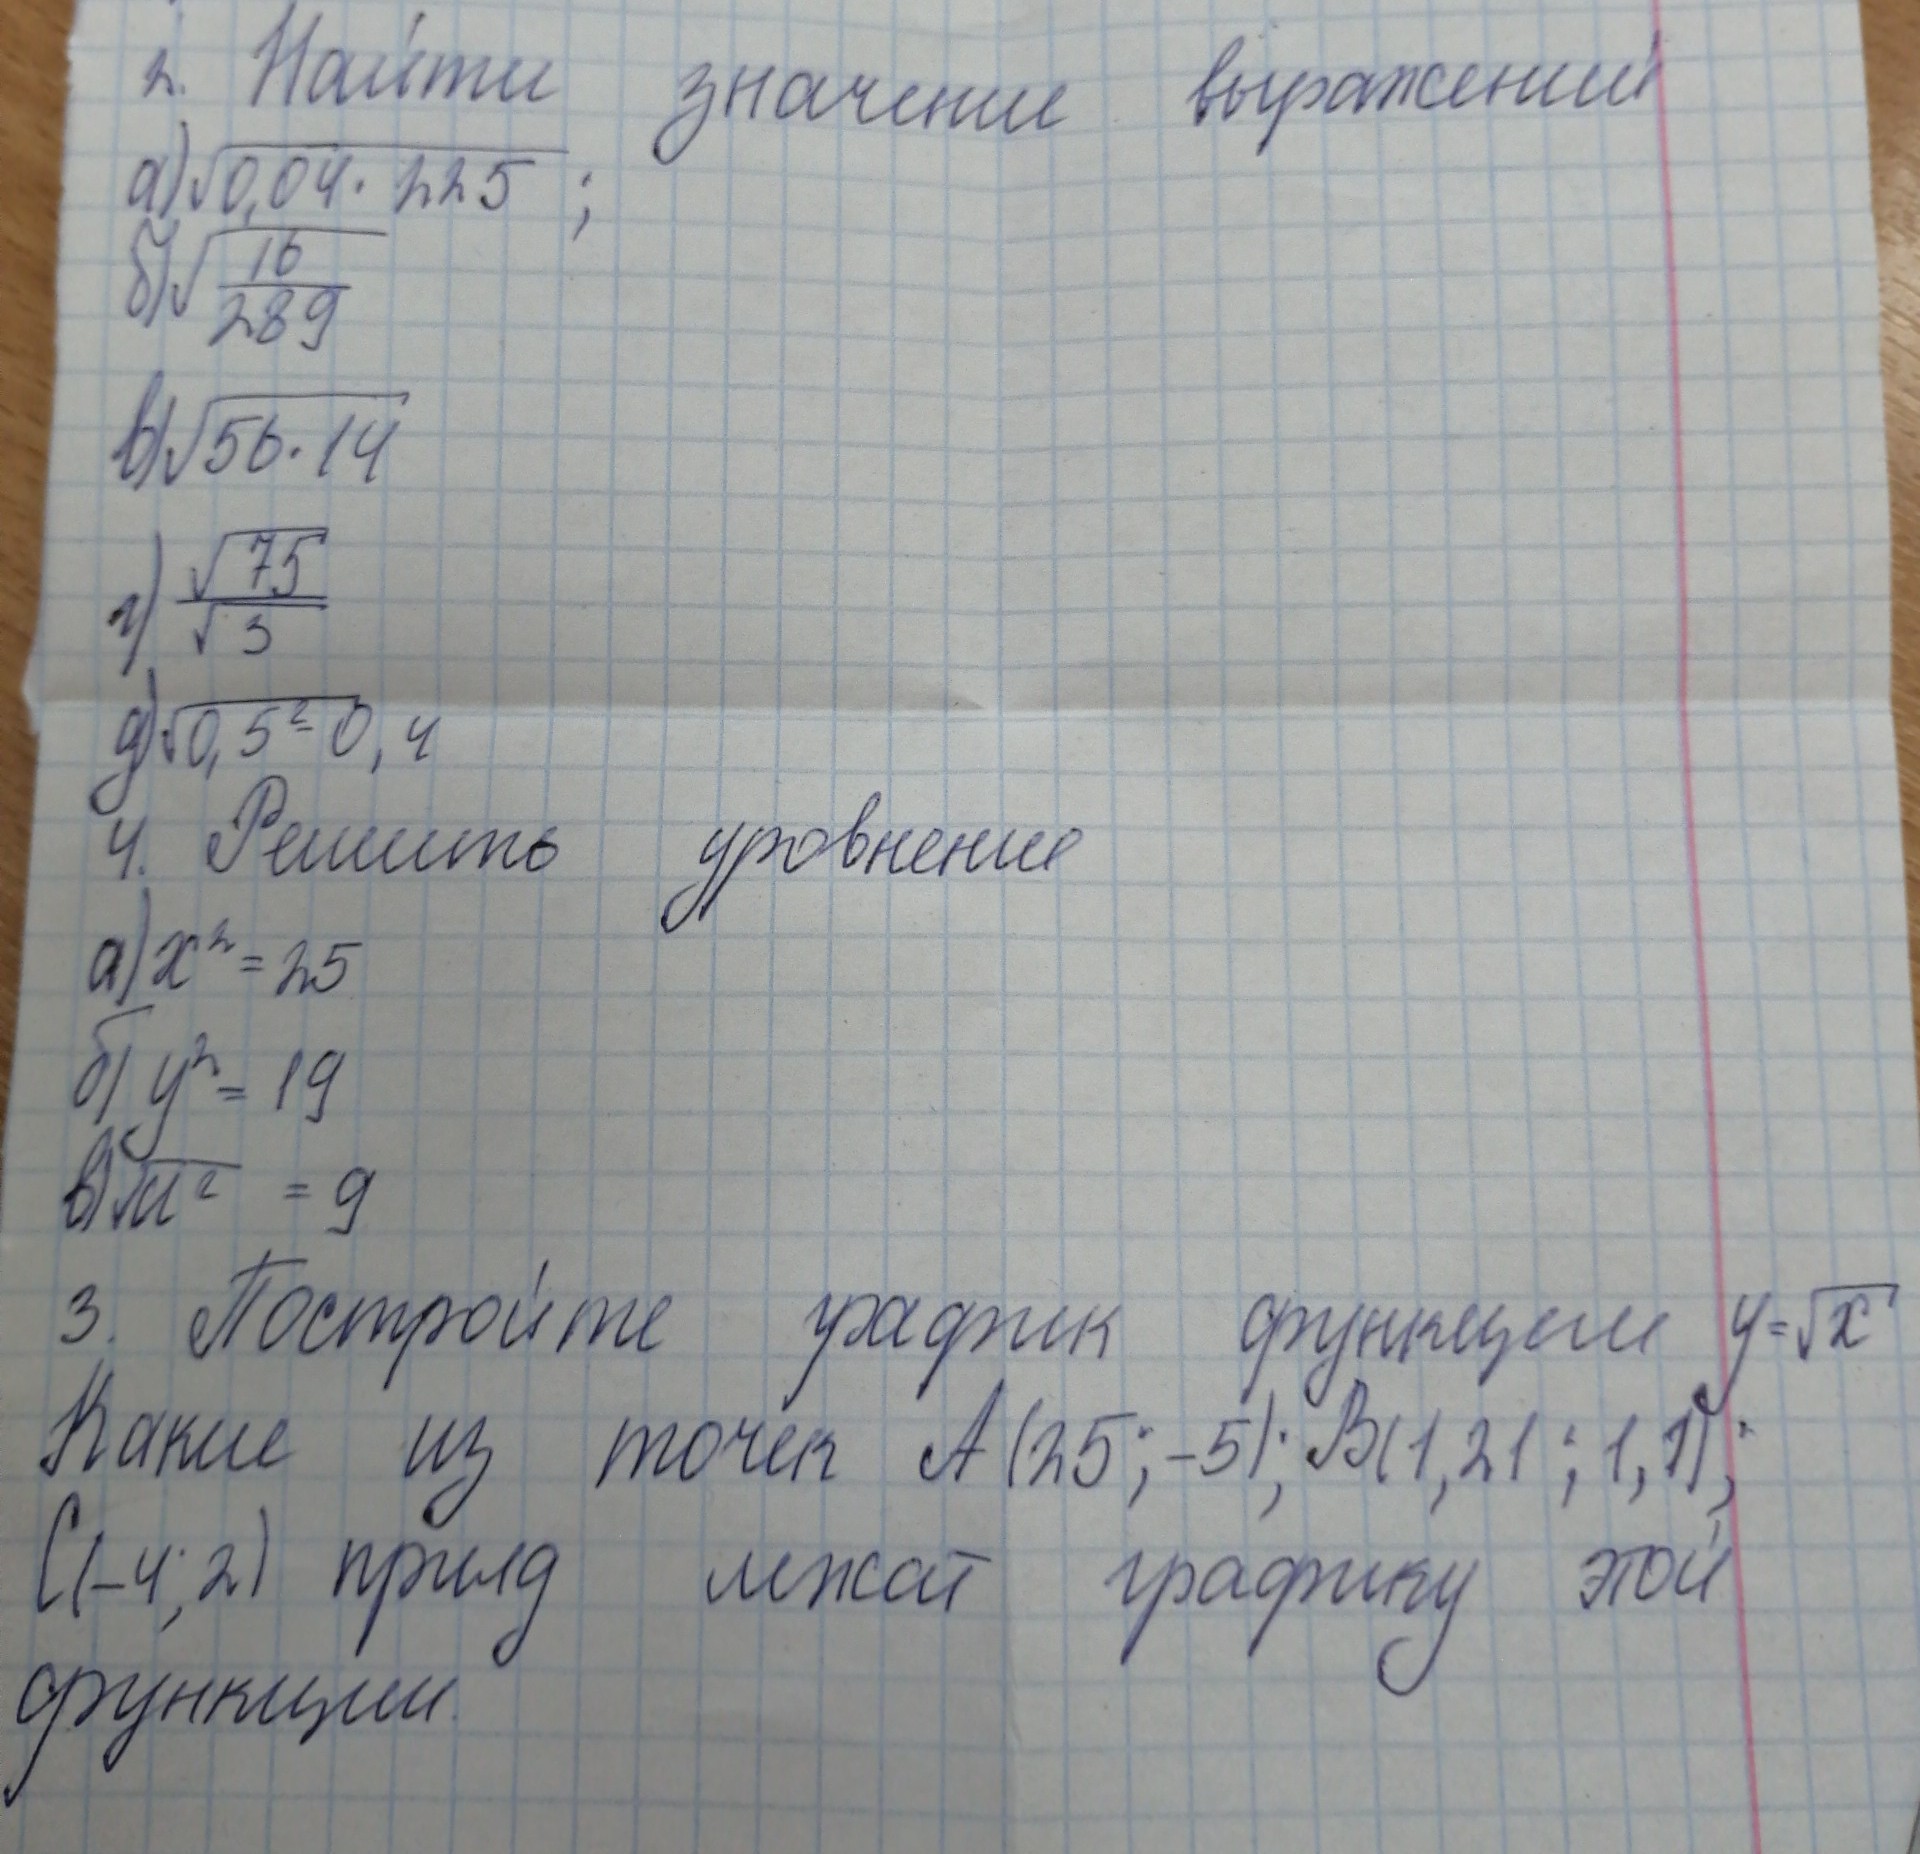 2. Найти значение выражений
а) √0,04 · 225 ;
б) √16/289
в) √56 · 14
г) √75/√3
д) √0,5² - 0,4
4. Решить уровнение
а) x² = 25
б) y² = 19
в) √и² = 9
3. Постройте график функции y = √x
Какие из точек A(25; -5); B(1,21 ; 1,1);
C(-4; 2) лжат графику этой
функции.